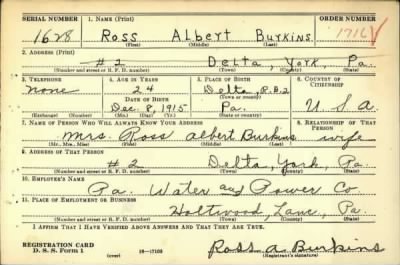 SERIAL NUMBER 1. NAME (Print) ORDER NUMBER
1628 Ross Albert Burkins 1716
(First) (Middle) (Last)
2. ADDRESS (Print)
#2 Delta, York, Pa.
(Number and street or R. F. D. number) (Town) (County) (State)
3. TELEPHONE 4. AGE IN YEARS 5. PLACE OF BIRTH 6. COUNTRY OF CITIZENSHIP
none 24 Delta, R.D.2
DATE OF BIRTH (Town or county)
Dec. 8, 1915 Pa. U.S.A.
(Exchange) (Number) (Mo.) (Day) (Yr.) (State or country)
7. NAME OF PERSON WHO WILL ALWAYS KNOW YOUR ADDRESS 8. RELATIONSHIP OF THAT PERSON
Mrs. Ross Albert Burkins wife
(Mr., Mrs., Miss) (First) (Middle) (Last)
9. ADDRESS OF THAT PERSON
#2 Delta, York, Pa.
(Number and street or R. F. D. number) (Town) (County) (State)
10. EMPLOYER'S NAME
Pa. Water and Power Co
11. PLACE OF EMPLOYMENT OR BUSINESS
Holtwood, Lanc, Pa.
(Number and street or R. F. D. number) (Town) (County) (State)
I AFFIRM THAT I HAVE VERIFIED ABOVE ANSWERS AND THAT THEY ARE TRUE.
REGISTRATION CARD
D. S. S. Form 1 (over) 16—17105 Ross A Burkins
(Registrant's signature)